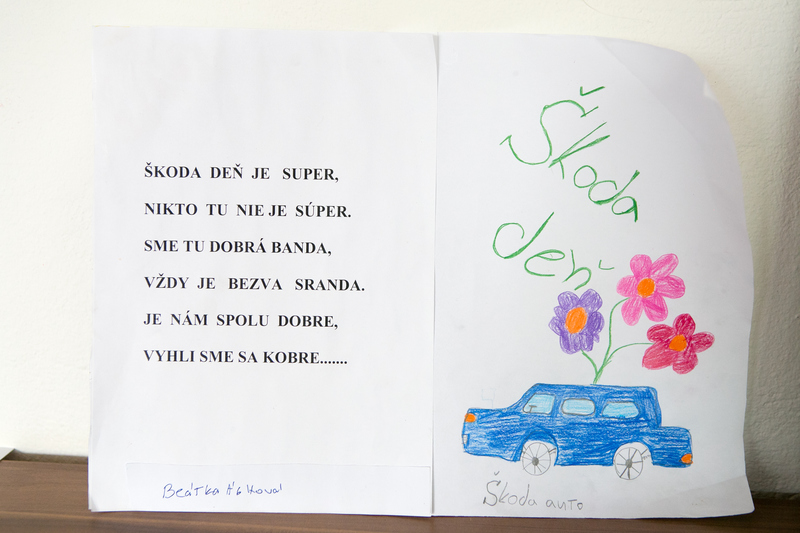 ŠKODA DEŇ JE SUPER,
NIKTO TU NIE JE SÚPER.
SME TU DOBRÁ BANDA,
VŽDY JE BEZVA SRANDA.
JE NÁM SPOLU DOBRE,
VYHLI SME SA KOBRE.......
Beátka
Škoda
deň
Škoda auto